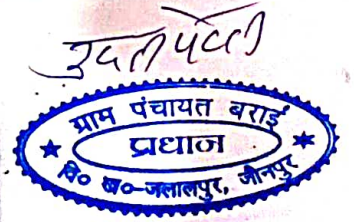 ग्राम पंचायत बराई
प्रधान
वि० ख०-जलालपुर, जौनपुर